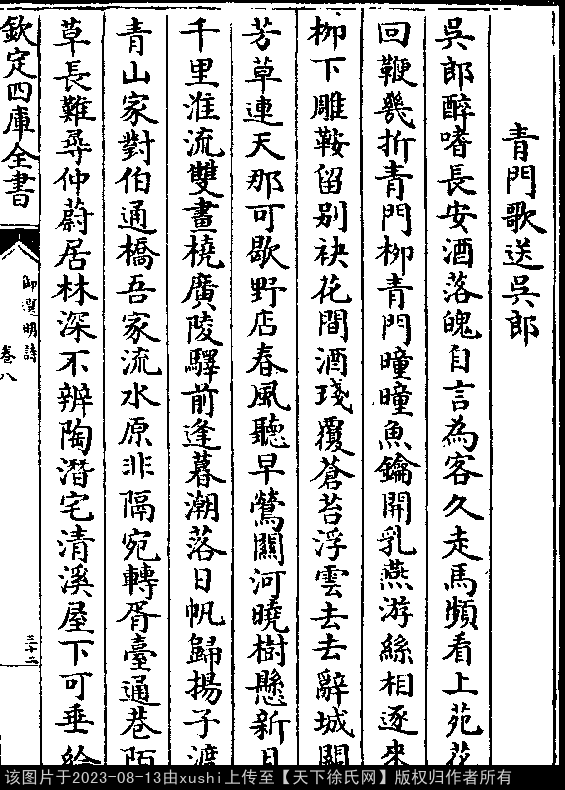 青門歌送吳郎
吳郎醉嗜長安酒落魄自言為客久走馬頻看上苑花
回鞭幾折青門柳青門曈曈魚鑰開乳燕游絲相逐來
柳下雕鞍留别袂花間酒琖覆蒼苔浮雲去去辭城闕
芳草連天那可歇野店春風聽早鶯關河曉樹懸新月
千里淮流雙畫橈廣陵驛前逢暮潮落日帆歸揚子渡
青山家對伯通橋吾家流水原非隔宛轉胥臺通巷陌
草長難尋仲蔚居林深不辨陶潛宅清溪屋下可垂綸
欽定四庫全書
御選明詩
卷八
三十二
该图片于2023-08-13由xushi上传至【天下徐氏网】版权归作者所有